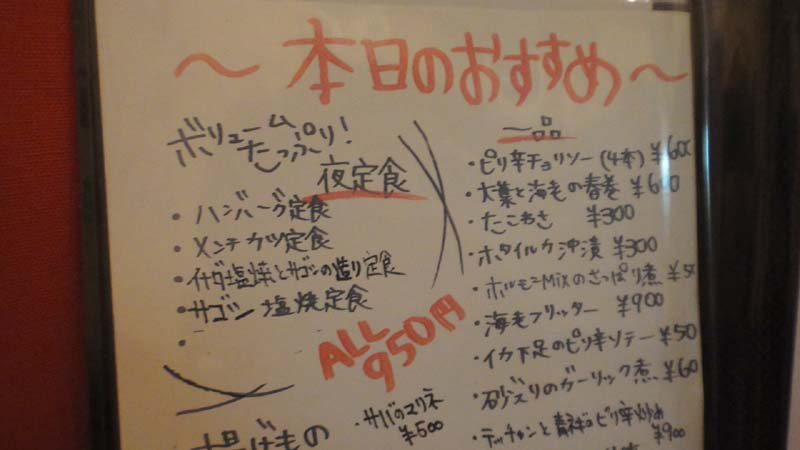 ～本日のおすすめ～
ボリューム
たっぷり!
夜定食
・ハンバーグ定食
・メンチカツ定食
・イサダ塩焼とサゴシの造り定食
・サゴシ 塩焼定食
・
ALL
950円
揚げもの
・サバのマリネ
¥500
一品
・ピリ辛チョリソー (4本) ¥600
・大葉と海老の春巻 ¥600
・たこわさ ¥300
・ホタイルカ沖漬 ¥300
・ホルモンMixのさっぱり煮 ¥50
・海老フリッター ¥900
・イカ下足のピリ辛ソテー ¥50
・砂ズリのガーリック煮 ¥60
・テッチャンと青ネギのピリ辛炒め
¥900